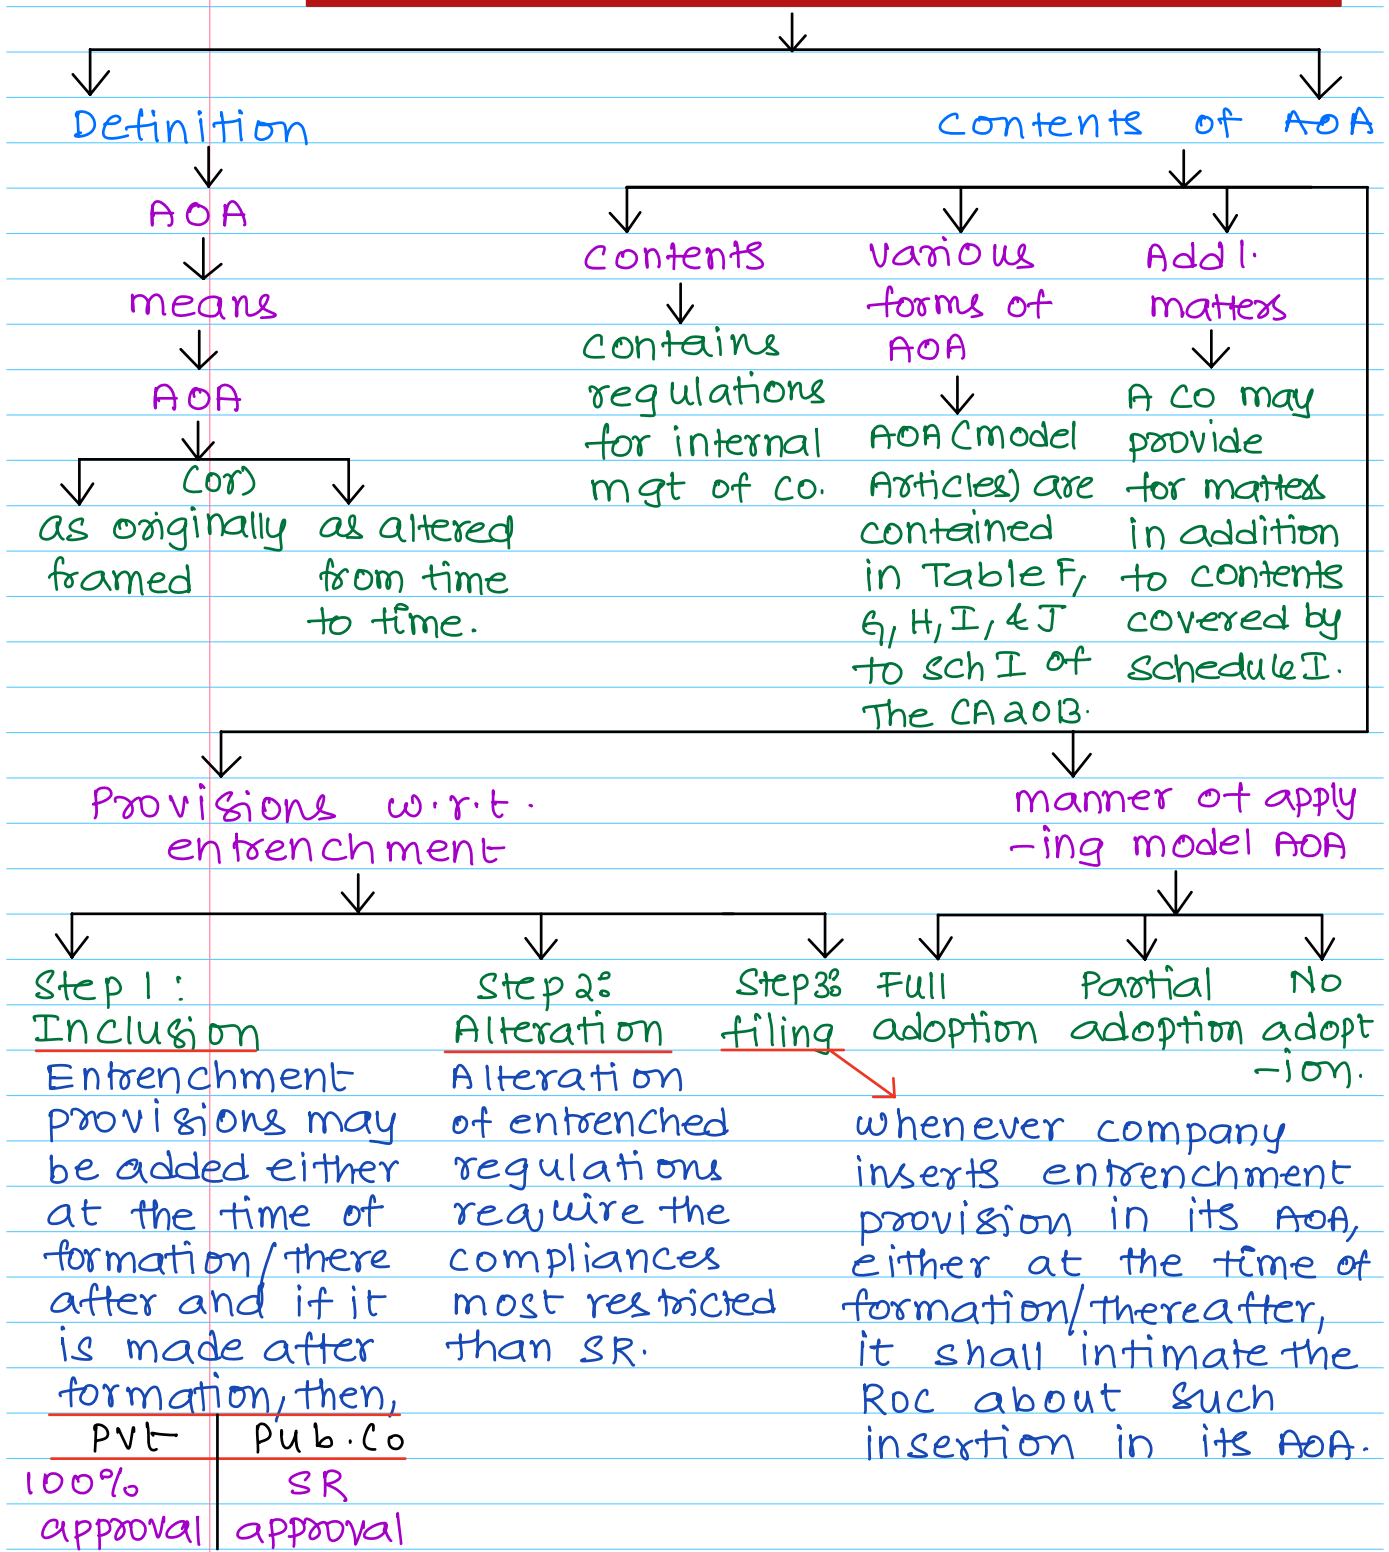 Definition
AOA
means
AOA
(or)
as originally
framed
as altered
from time
to time.
Contents of AOA
Contents
contains
regulations
for internal
mgt of co.
Various
forms of
AOA
AOA (model
Articles) are
contained
in Table F,
G, H, I, & J
to sch I of
The CA 2013.
Addl.
matters
A co may
provide
for matters
in addition
to contents
covered by
Schedule I.
Provisions w.r.t.
entrenchment
Step 1:
Inclusion
Entrenchment
provisions may
be added either
at the time of
formation/there
after and if it
is made after
formation, then,
Pvt
100%
approval
Pub.Co
SR
approval
Step 2:
Alteration
Alteration
of entrenched
regulations
require the
compliances
most restricted
than SR.
Step 3:
filing
whenever company
inserts entrenchment
provision in its AOA,
either at the time of
formation/thereafter,
it shall intimate the
ROC about such
insertion in its AOA.
manner of apply
-ing model AOA
Full
adoption
Partial
adoption
No
adopt
-ion.